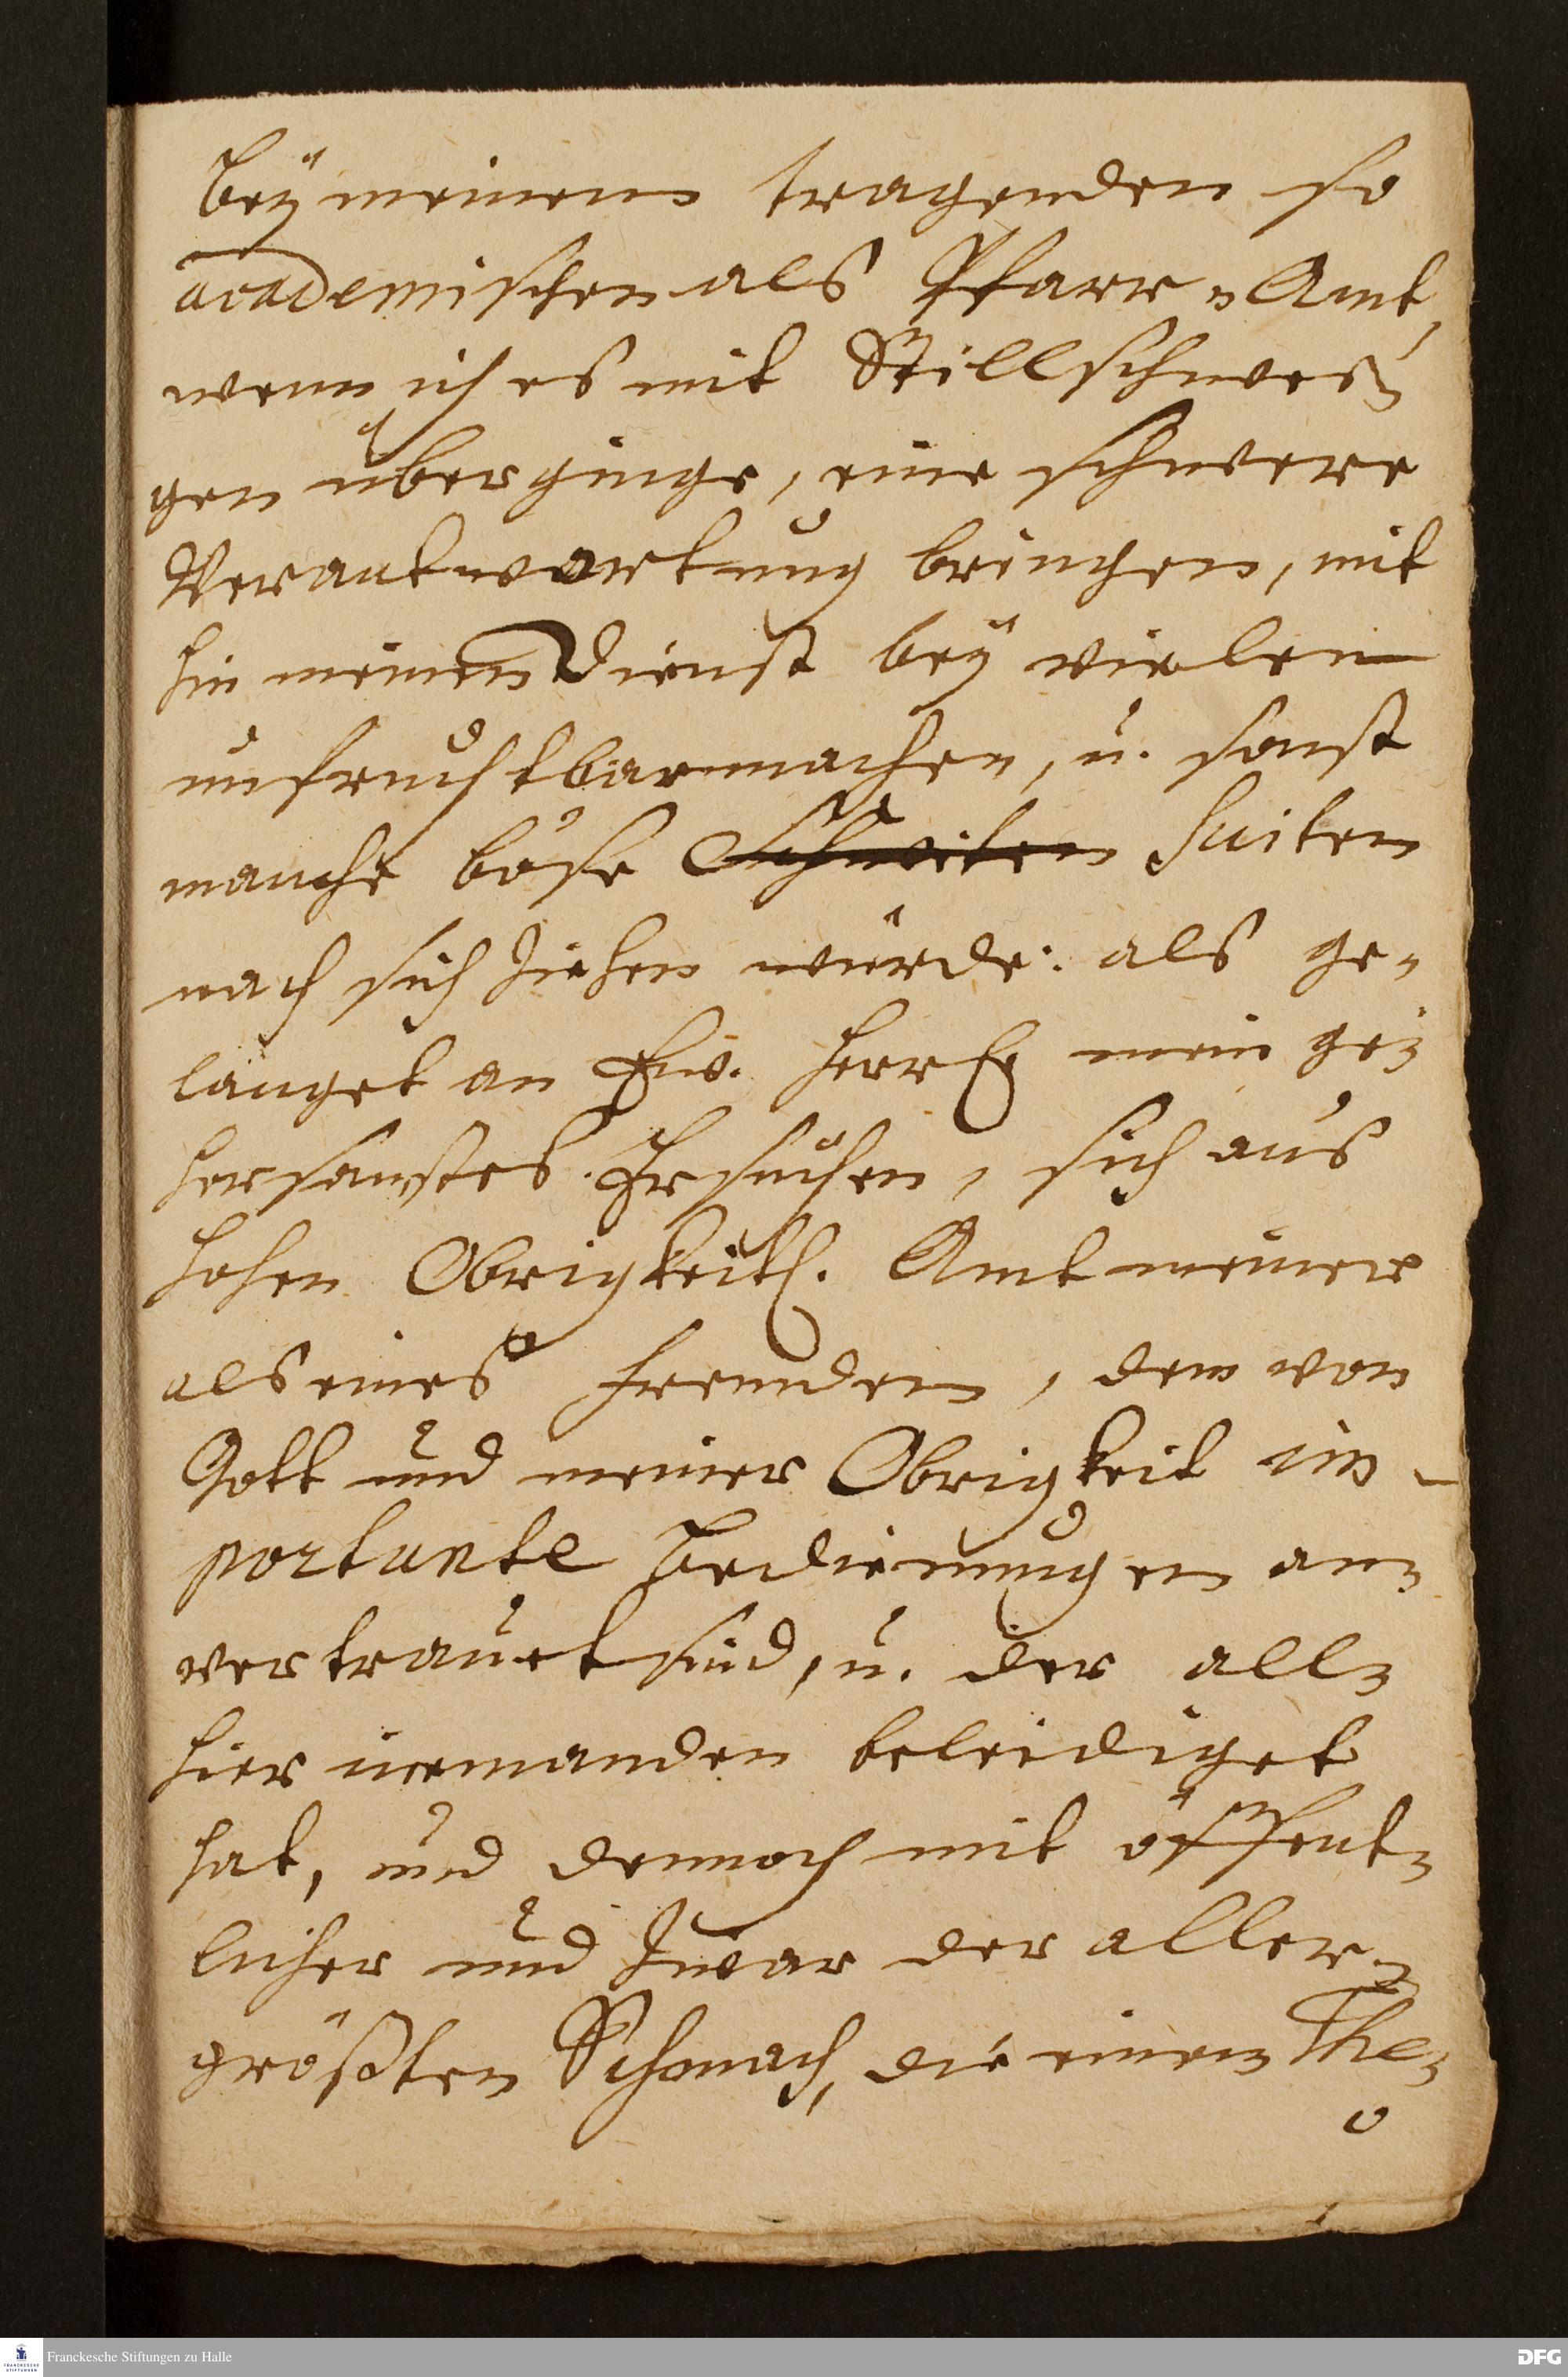 bey meinem tragenden so
academischen als Pfarr-Amt,
wenn ich es mit Stillschwei-
gen überginge, eine schwere
Verantwortung bringen, mit
hin meinen Dienst bey vielen
unfruchtbar machen, u. sonst
manche böse Schweiten Suiten
nach sich ziehen würde: als ge-
langet an Ew. HerrL mein ge-
horsamstes Ersuchen, sich aus
hohen Obrigkeitl. Amt meiner
als eines frembden, dem von
Gott und meiner Obrigkeit im-
portante Bedienungen an-
vertrauet sind, u. der all-
hier niemanden beleidiget
hat, und dennoch mit öffent-
licher und zwar der aller-
größten Schmach, die einem The-
o
Franckesche Stiftungen zu Halle
DFG